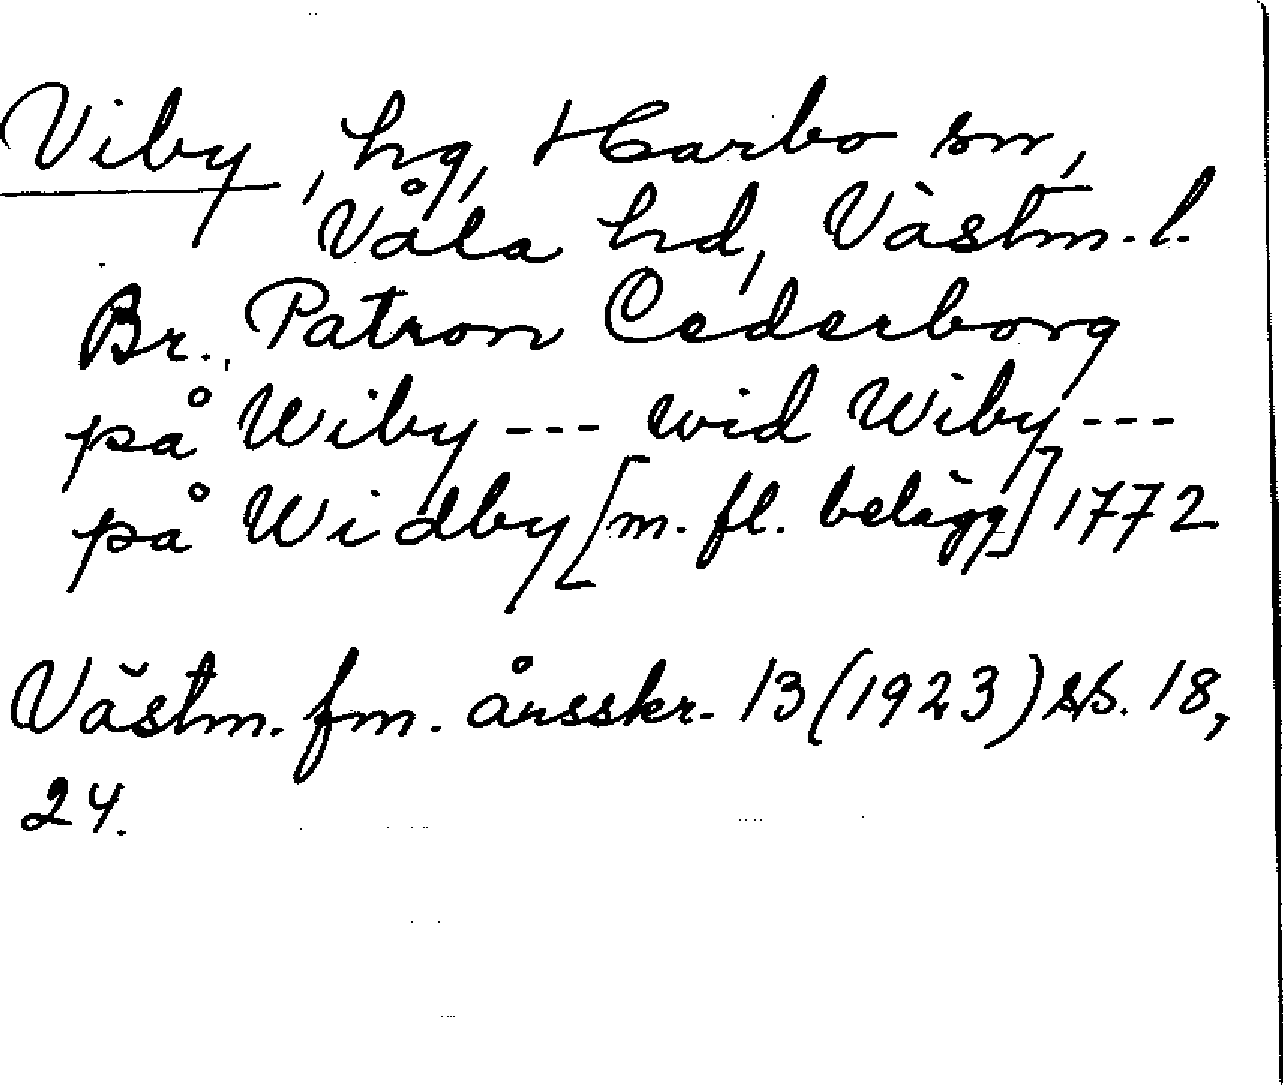 Viby, hg, Harbo sn,
Våla hd, Västm. l.
Br. Patron Cederborg
på Wiby --- wid Wiby ---
på Widby [m. fl. belägg] 1772
Västm. fm. årsskr. 13 (1923) ss. 18,
24.